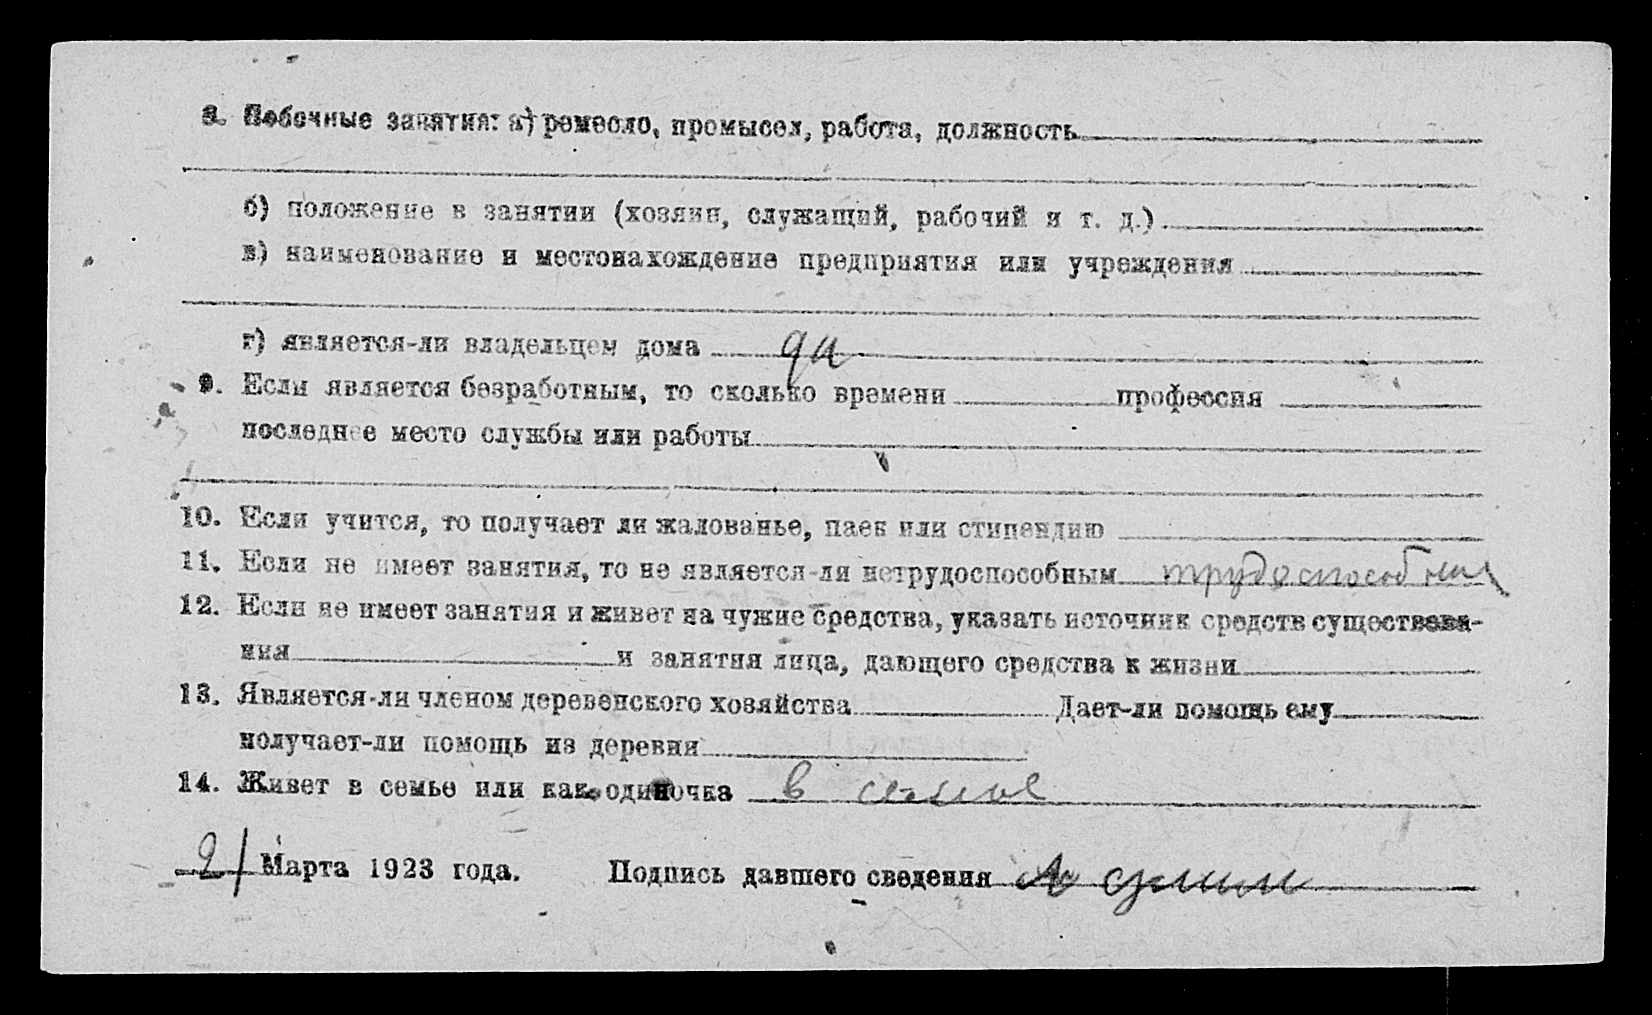 8. Побочные занятия: а) ремесло, промысел, работа, должность
б) положение в занятии (хозяин, служащий, рабочий и т. д.)
в) наименование и местонахождение предприятия или учреждения
г) является-ли владельцем дома да
9. Если является безработным, то сколько времени профессия
последнее место службы или работы
10. Если учится, то получает ли жалованье, паек или стипендию
11. Если не имеет занятия, то не является-ли нетрудоспособным трудоспособный
12. Если не имеет занятия и живет на чужие средства, указать источник средств существова-
ния и занятия лица, дающего средства к жизни
13. Является-ли членом деревенского хозяйства Дает-ли помощь ему
получает-ли помощь из деревни
14. Живет в семье или как одиночка в семье
21 Марта 1923 года. Подпись давшего сведения